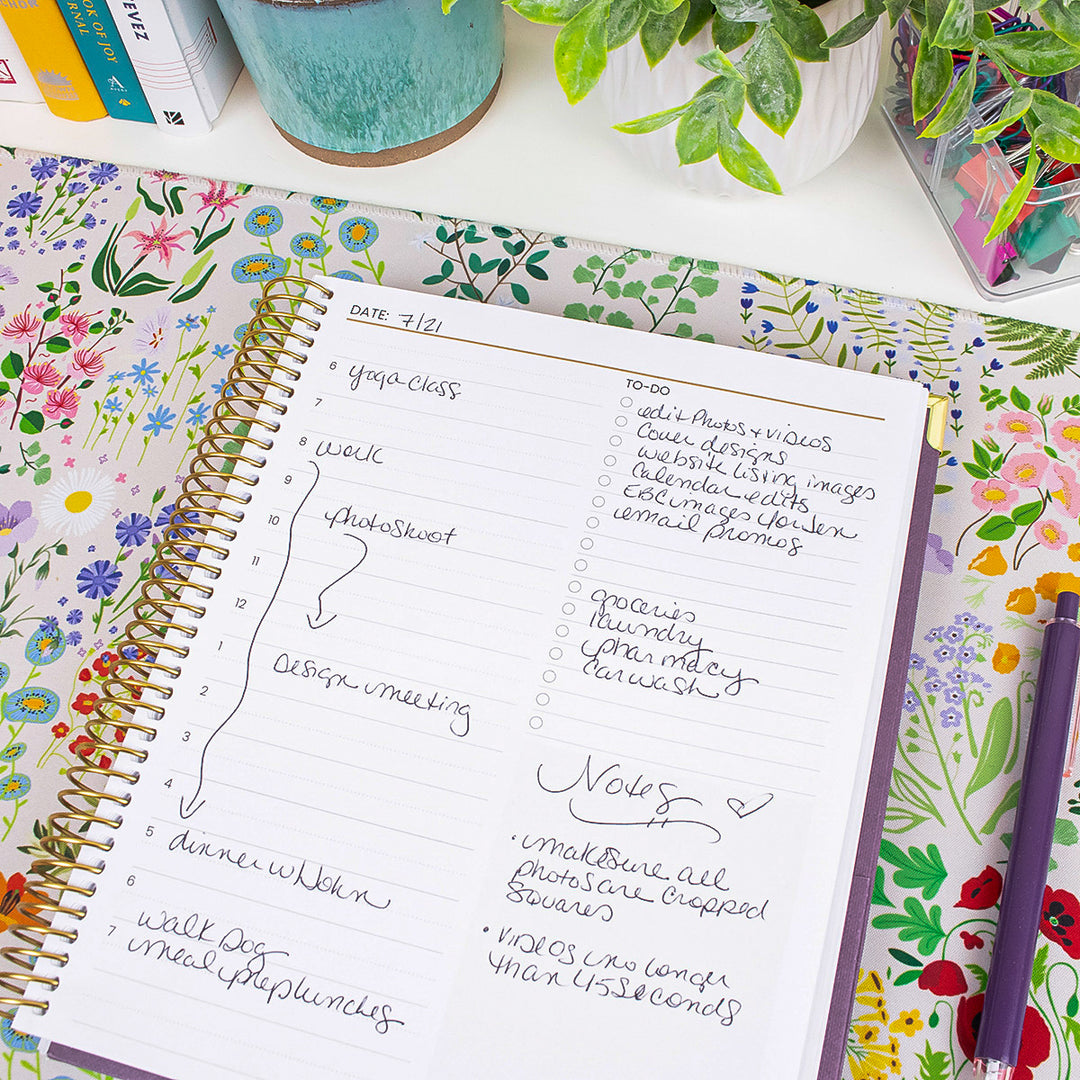 OF JOY
JOURNAL
EVEZ
DATE: 7/21
6 yoga class
7
8 work
9
10 photoshoot
11
12
1 Design meeting
2
3
4
5 dinner w/John
6
walk Dog
7 meal prep lunches
TO-DO
edit Photos + videos
Cover designs
website listing images
Calendar edits
EBC images for Jen
email promos
groceries
laundry
pharmacy
car wash
Notes
• make sure all
photos are cropped
squares
• videos no longer
than 45 seconds